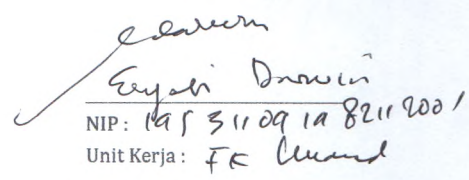 Eryati Darwin
NIP : 19531109 19 8211 2001
Unit Kerja : FK Unand